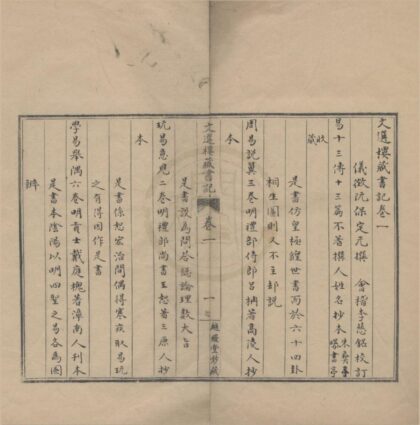 文選樓藏書記卷一
儀徵阮保定元撰 會稽李慈銘校訂
易十三傳十三篇不著撰人姓名抄本朱彝尊曝書亭
收藏
是書仿皇極經世書而於六十四卦
桐生圖則又不主邵說
周易說翼三卷明禮部侍郎呂柟著高陵人抄
本
文選樓藏書記 卷一 一 越縵堂抄藏
是書設為問答總論理數大旨
玩易意見二卷明禮部尚書王恕著三原人抄
本
是書係恕宏治間偶得寒疾取易玩
之有得因作是書
學易舉隅六卷明貢士戴庭槐著漳南人刊本
是書本陰陽以明四聖之易各為圖
辨